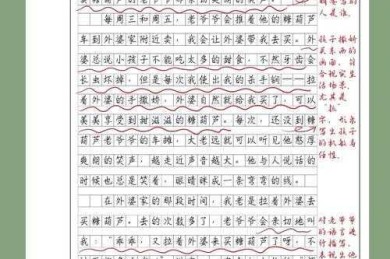 的人是谁。
每周三和周五，老爷爷会推着他的糖葫芦
车到外婆家附近卖，我会让外婆带我去买。外
婆总说小孩子不能吃太多的甜食，不然牙齿会
长虫坏掉，但是每次我使出我的杀手锏——拉
着外婆的手撒娇，外婆自然就给我买了，可以
美美享受到甜滋滋的糖葫芦。每次，还没到糖
葫芦老爷爷的车摊，大老远就可以听见他憨厚
爽朗的笑声，越走近声音越大。他与人说话的
时候也总是笑着，眼睛眯成一条弯弯的线。
在外婆家的那段时间，我老是拉着外婆去
买糖葫芦。去的次数多了，老爷爷会亲切地叫
我："乖乖，又拉着外婆来买糖葫芦了呀，不
孩子撒娇
买东西的
画面，符
合现实生
活场景，
尤其是
"拉"
字，形象
写出孩子
的机敏与
任性。
对老爷爷
的语言进
行描写，
表现出他